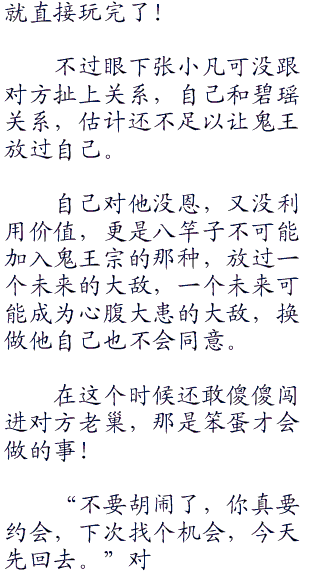 就直接玩完了！
不过眼下张小凡可没跟
对方扯上关系，自己和碧瑶
关系，估计还不足以让鬼王
放过自己。
自己对他没恩，又没利
用价值，更是八竿子不可能
加入鬼王宗的那种，放过一
个未来的大敌，一个未来可
能成为心腹大患的大敌，换
做他自己也不会同意。
在这个时候还敢傻傻闯
进对方老巢，那是笨蛋才会
做的事！
“不要胡闹了，你真要
约会，下次找个机会，今天
先回去。”对